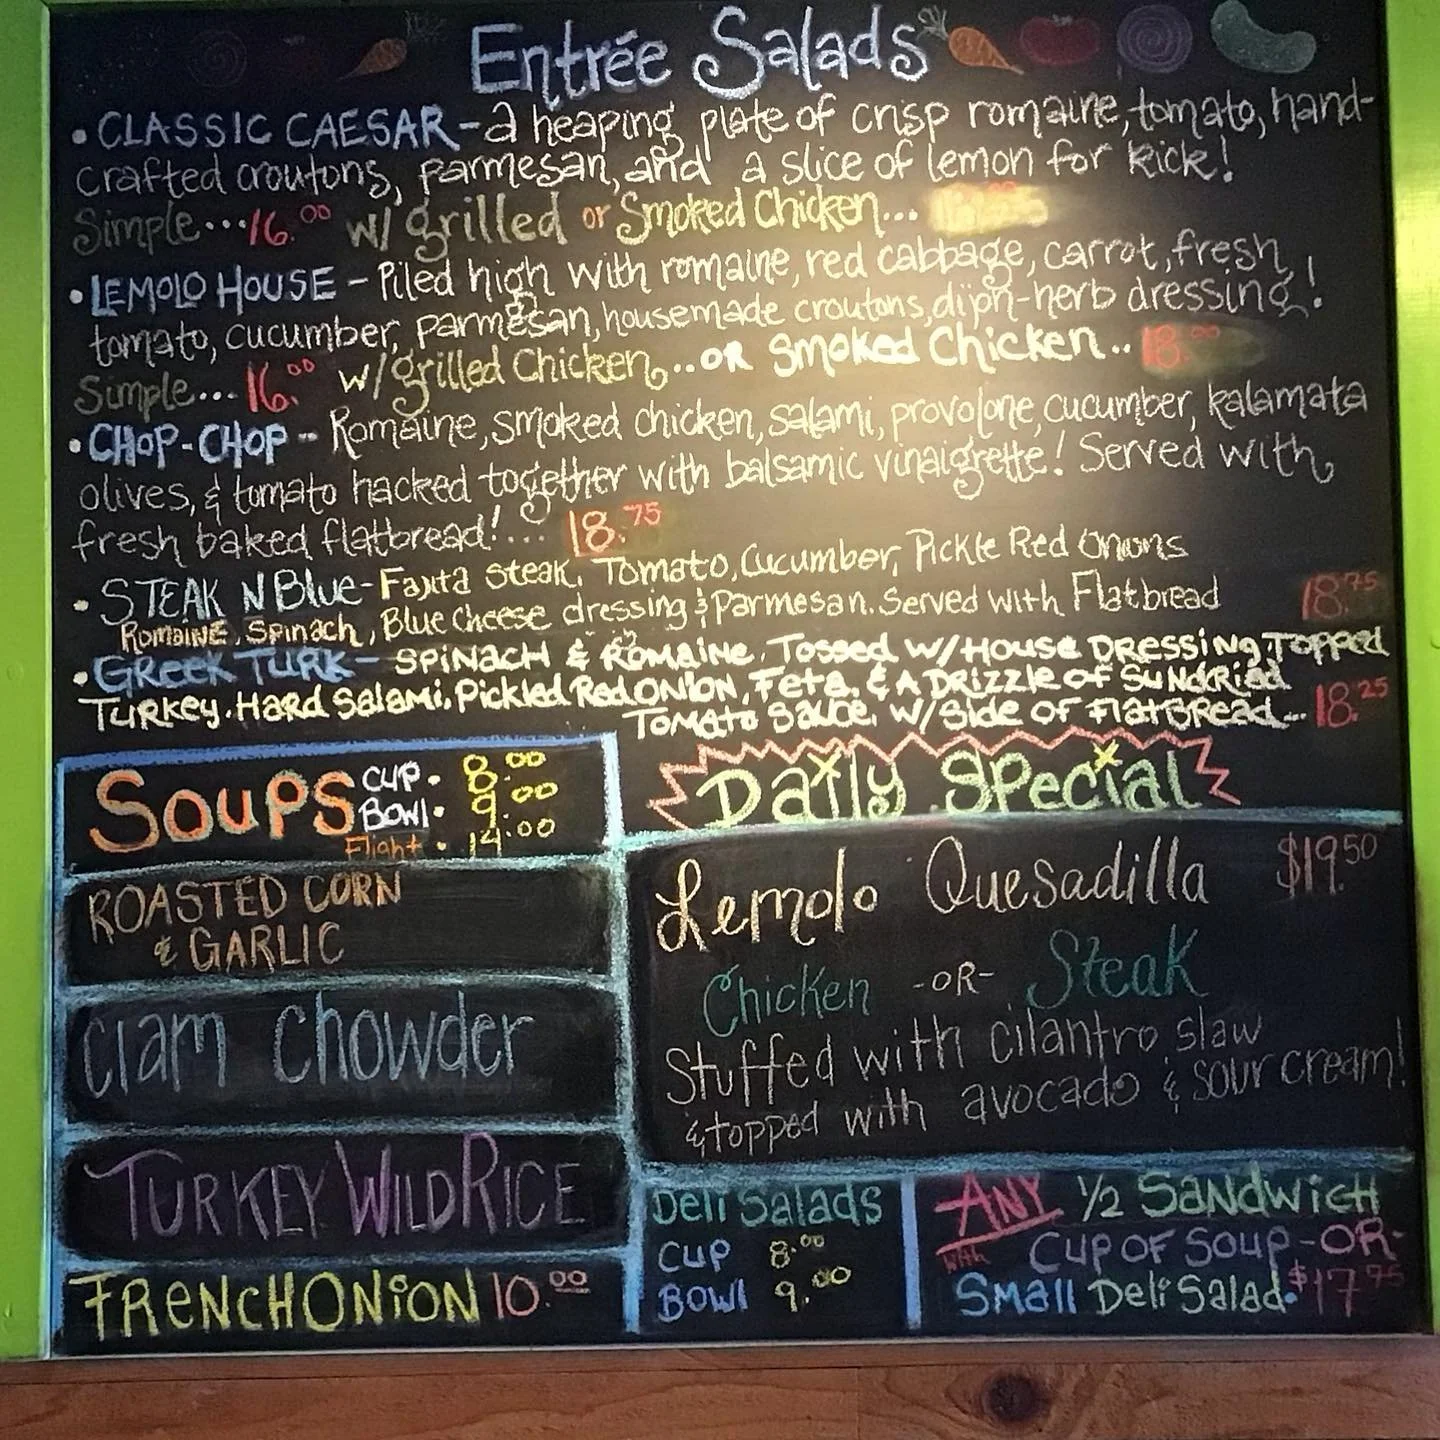 Entrée Salads
• CLASSIC CAESAR - a heaping plate of crisp romaine, tomato, hand-
crafted croutons, parmesan, and a slice of lemon for kick!
Simple... 16.00 w/ grilled or Smoked Chicken...
• LEMOLO HOUSE - Piled high with romaine, red cabbage, carrot, fresh
tomato, cucumber, parmesan, housemade croutons, dijon-herb dressing!
Simple... 16.00 w/ grilled Chicken... OR Smoked Chicken.. 18.00
• CHOP-CHOP - Romaine, smoked chicken, salami, provolone, cucumber, kalamata
olives, & tomato hacked together with balsamic vinaigrette! Served with
fresh baked flatbread!... 18.75
• STEAK N Blue - Fajita Steak, Tomato, Cucumber, Pickle Red Onions
Romaine, Spinach, Blue Cheese dressing & Parmesan. Served with Flatbread 18.75
• GREEK TURK - SPINACH & ROMAINE, Tossed w/ House Dressing, Topped
Turkey, Hard Salami, Pickled Red ONION, Feta, & A Drizzle of Sundried
Tomato Sauce, w/ Side of Flatbread... 18.25
Soups CUP • 8.00
BOWL • 9.00
Flight • 14.00
ROASTED CORN
& GARLIC
Clam Chowder
TURKEY WILD RICE
FRENCH ONION 10.00
Daily Special
Lemolo Quesadilla $19.50
Chicken -OR- Steak
Stuffed with cilantro slaw
& topped with avocado & sour cream!
Deli Salads
CUP 8.00
BOWL 9.00
ANY 1/2 SANDWICH
WITH CUP OF SOUP -OR-
Small Deli Salad • $17.95